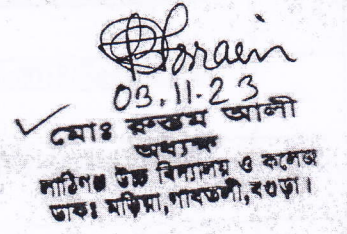 03.11.23
মোঃ রুস্তম আলী
অধ্যক্ষ
লাঠিগঞ্জ উচ্চ বিদ্যালয় ও কলেজ
ডাকঃ মড়িয়া, গাবতলী, বগুড়া।